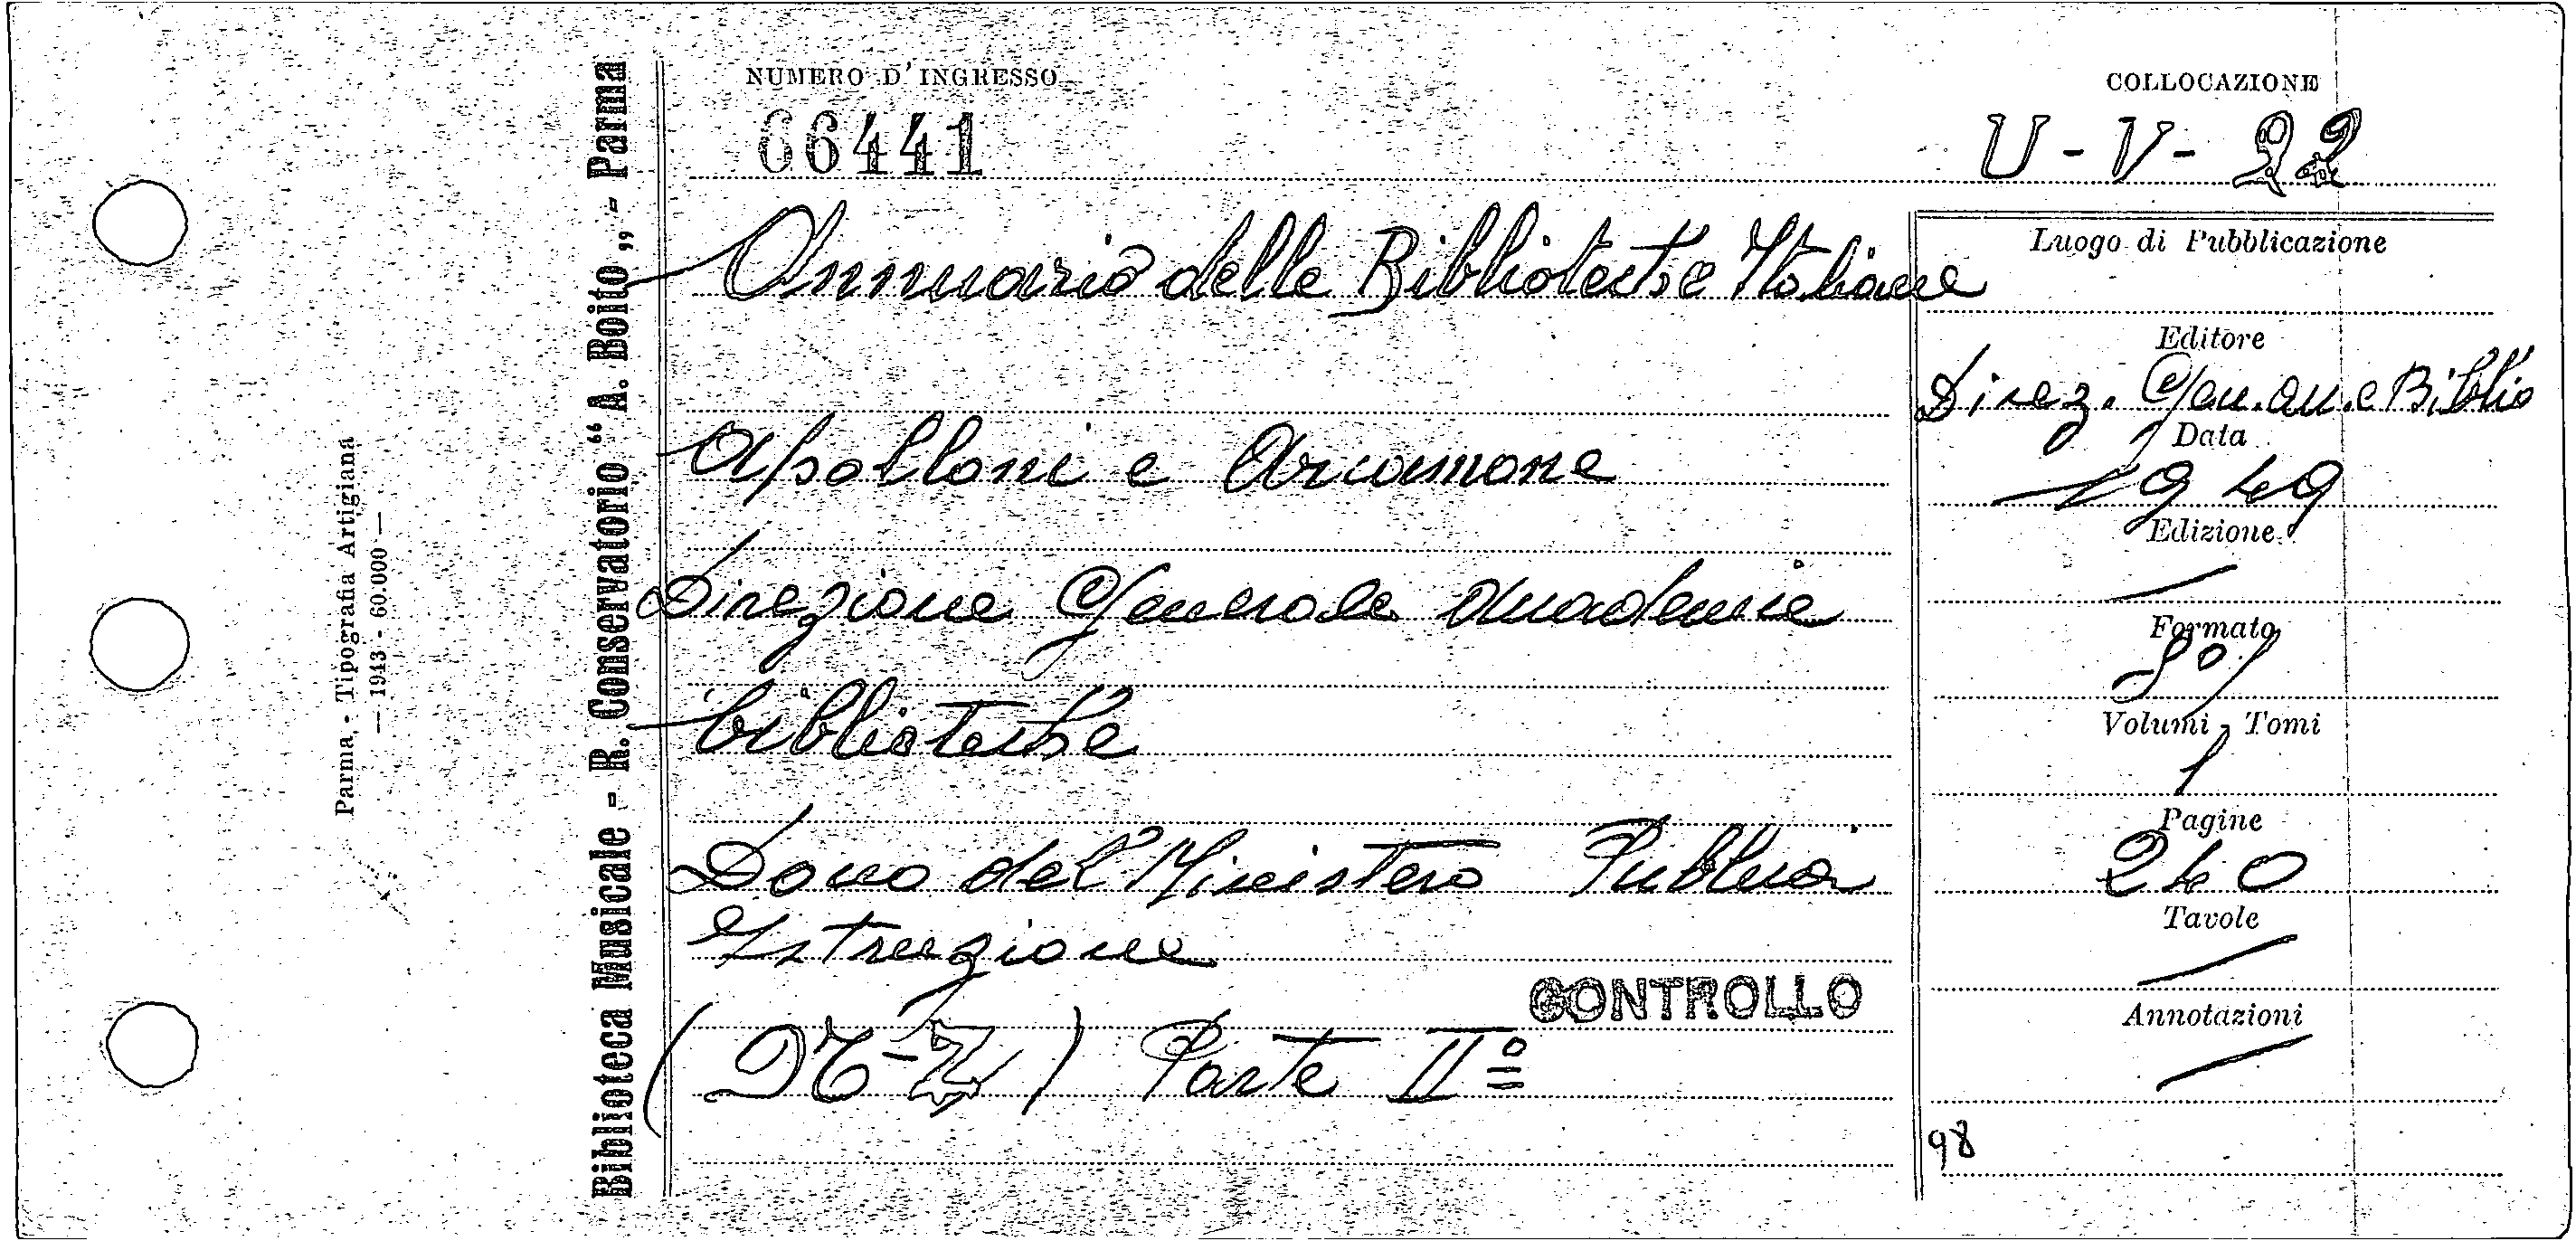 NUMERO D'INGRESSO
66441
COLLOCAZIONE
U - V - 22
Annuario delle Biblioteche Italiane
Apolloni e Arcamone
Direzione Generale Accademie
biblioteche
Dono del Ministero Pubblica
Istruzione
CONTROLLO
(M-Z) Parte IIº
Luogo di Pubblicazione
Editore
Direz. Gen. acc. e Biblio
Data
1949
Edizione
—
Formato
8º
Volumi - Tomi
1
Pagine
240
Tavole
—
Annotazioni
—
98
Biblioteca Musicale - R. Conservatorio “A. Boito„ - Parma
Parma - Tipografia Artigiana
— 1943 - 60.000 —